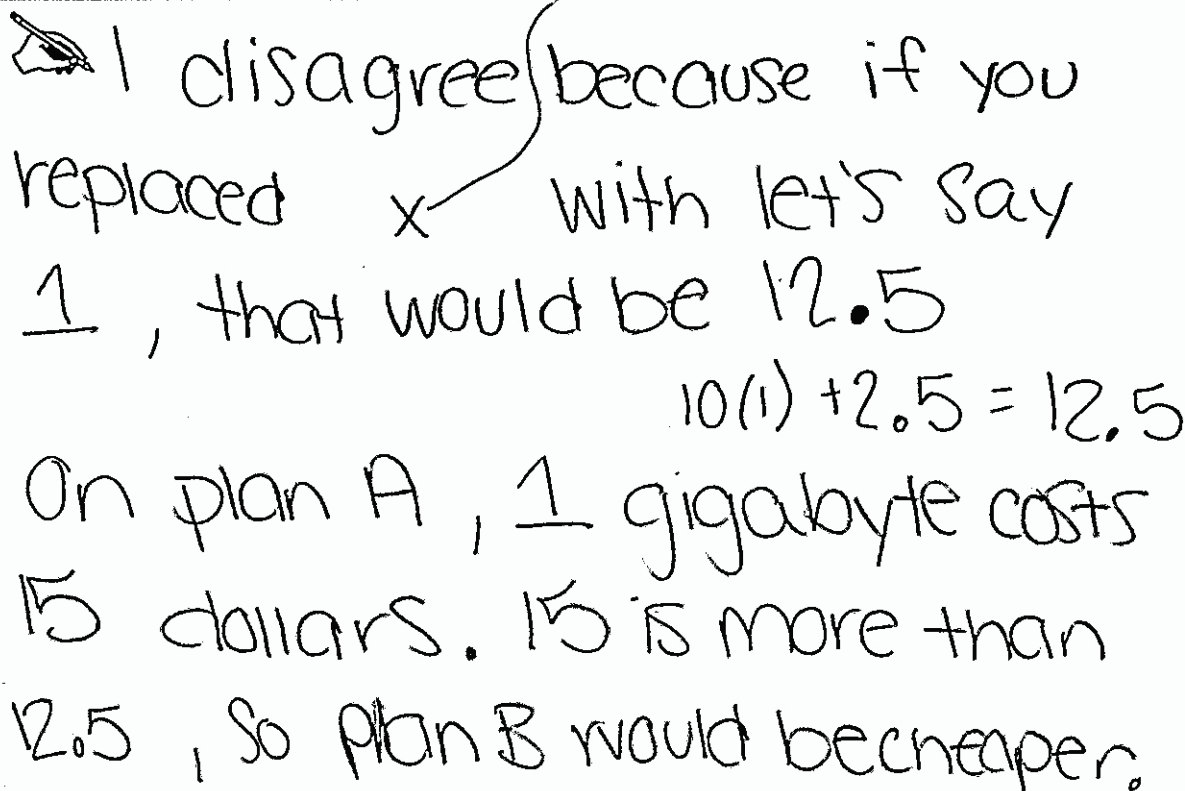 I disagree because if you
replaced x with let's say
1, that would be 12.5
10(1) + 2.5 = 12.5
On plan A, 1 gigabyte costs
15 dollars. 15 is more than
12.5, so plan B would be cheaper.